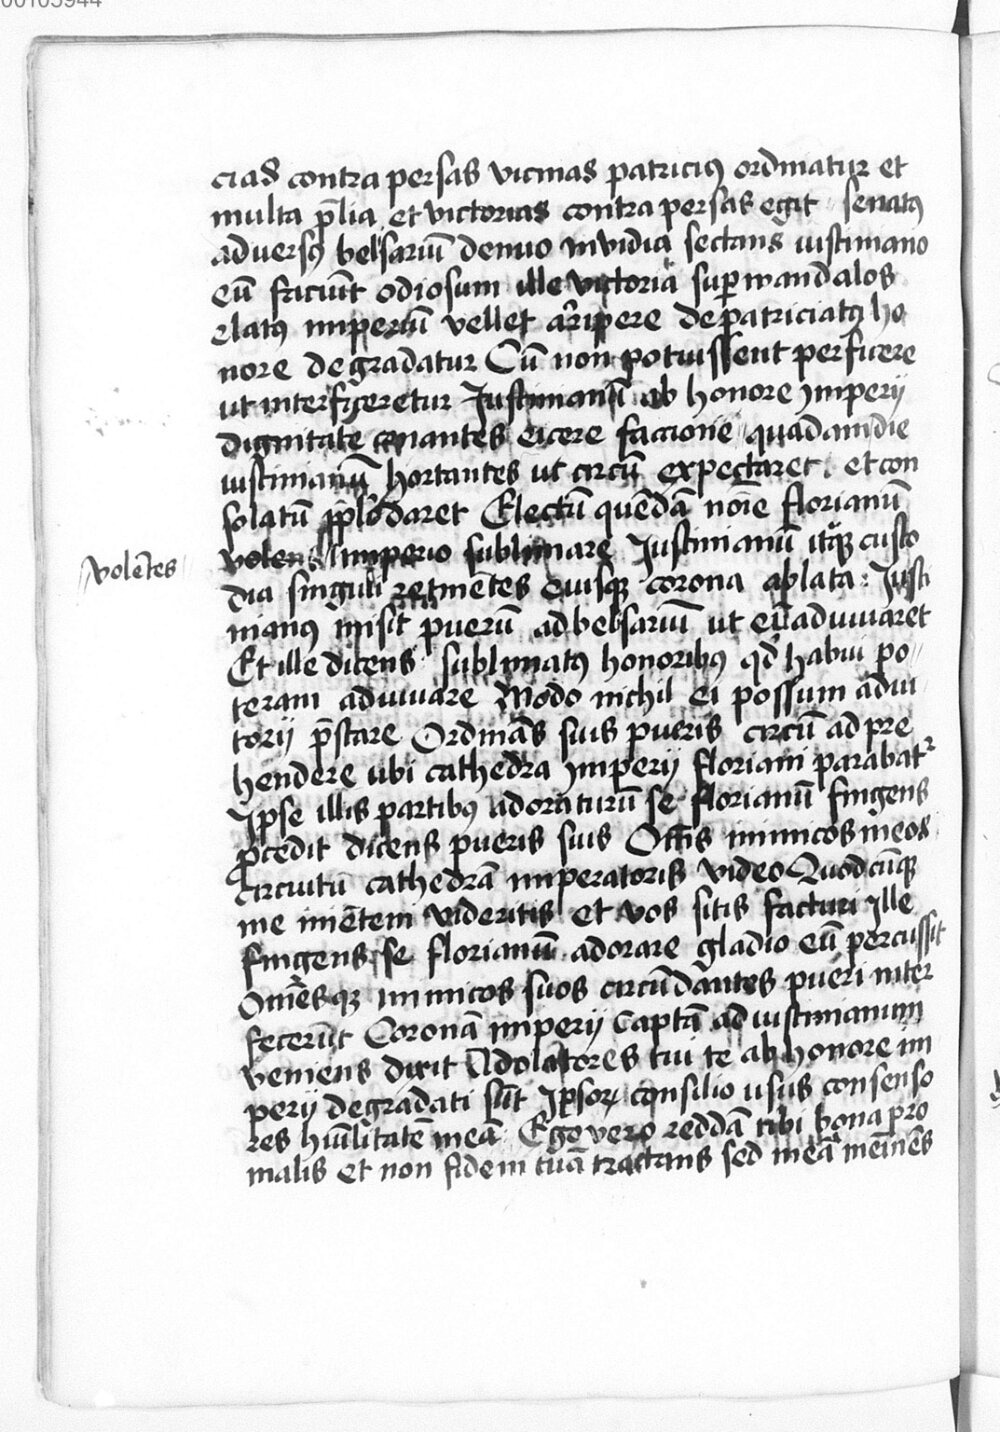 00105944
cias contra persas vicinas patriciꝰ ordinatur et
multa p̄lia et victorias contra persas egit senatꝰ
adversꝰ belsariū denuo invidia sectans iustiniano
eū faciūt odiosum ille victoriā suꝑ wandalos
elatꝰ imperiū vellet arripere de patriciatꝰ ho
nore degradatur Cū non potuissent perficere
ut interficeretur Justinianū ab honore Imperij
dignitate conantes eicere faccione quadam die
iustinianū hortantes ut circū expectaret et con
solatū pplo daret Electū quēdā noīe florianū
volens Imperio sublimare Justinianū itaqꝫ custo
volētes
dia singuli retinētes eiusqꝫ corona ablata Justi
nianꝰ misit puerū ad belsariū ut eū adiuuaret
Et ille dicens sublimatꝰ honoribꝰ qd̄ habui po
teram adiuuare Modo nichil ei possum adiu
torij p̄stare Ordinās suis pueris circū ad pre
hendere ubi cathedra Imperij floriani parabatr
Ipse illis partibꝰ adoraturū se florianū fingens
ꝓcedit dicens pueris suis Offis inimicos meos
circuitū cathedrā imperatoris video Quodcūqꝫ
me imētem videritis et vos sitis facturi Ille
fingens se florianū adorare gladio eū percussit
Om̄esqꝫ inimicos suos circūdantes pueri inter
fecerūt Coronā imperij captā ad iustinianum
veniens dixit Adolatores tui te ab honore im
perij degradati sūt Ipsoꝝ consilio usus consenso
res hūilitatē meā Ego vero reddā tibi bona pro
malis et non fidem tuā tractans sed meā meīnēs